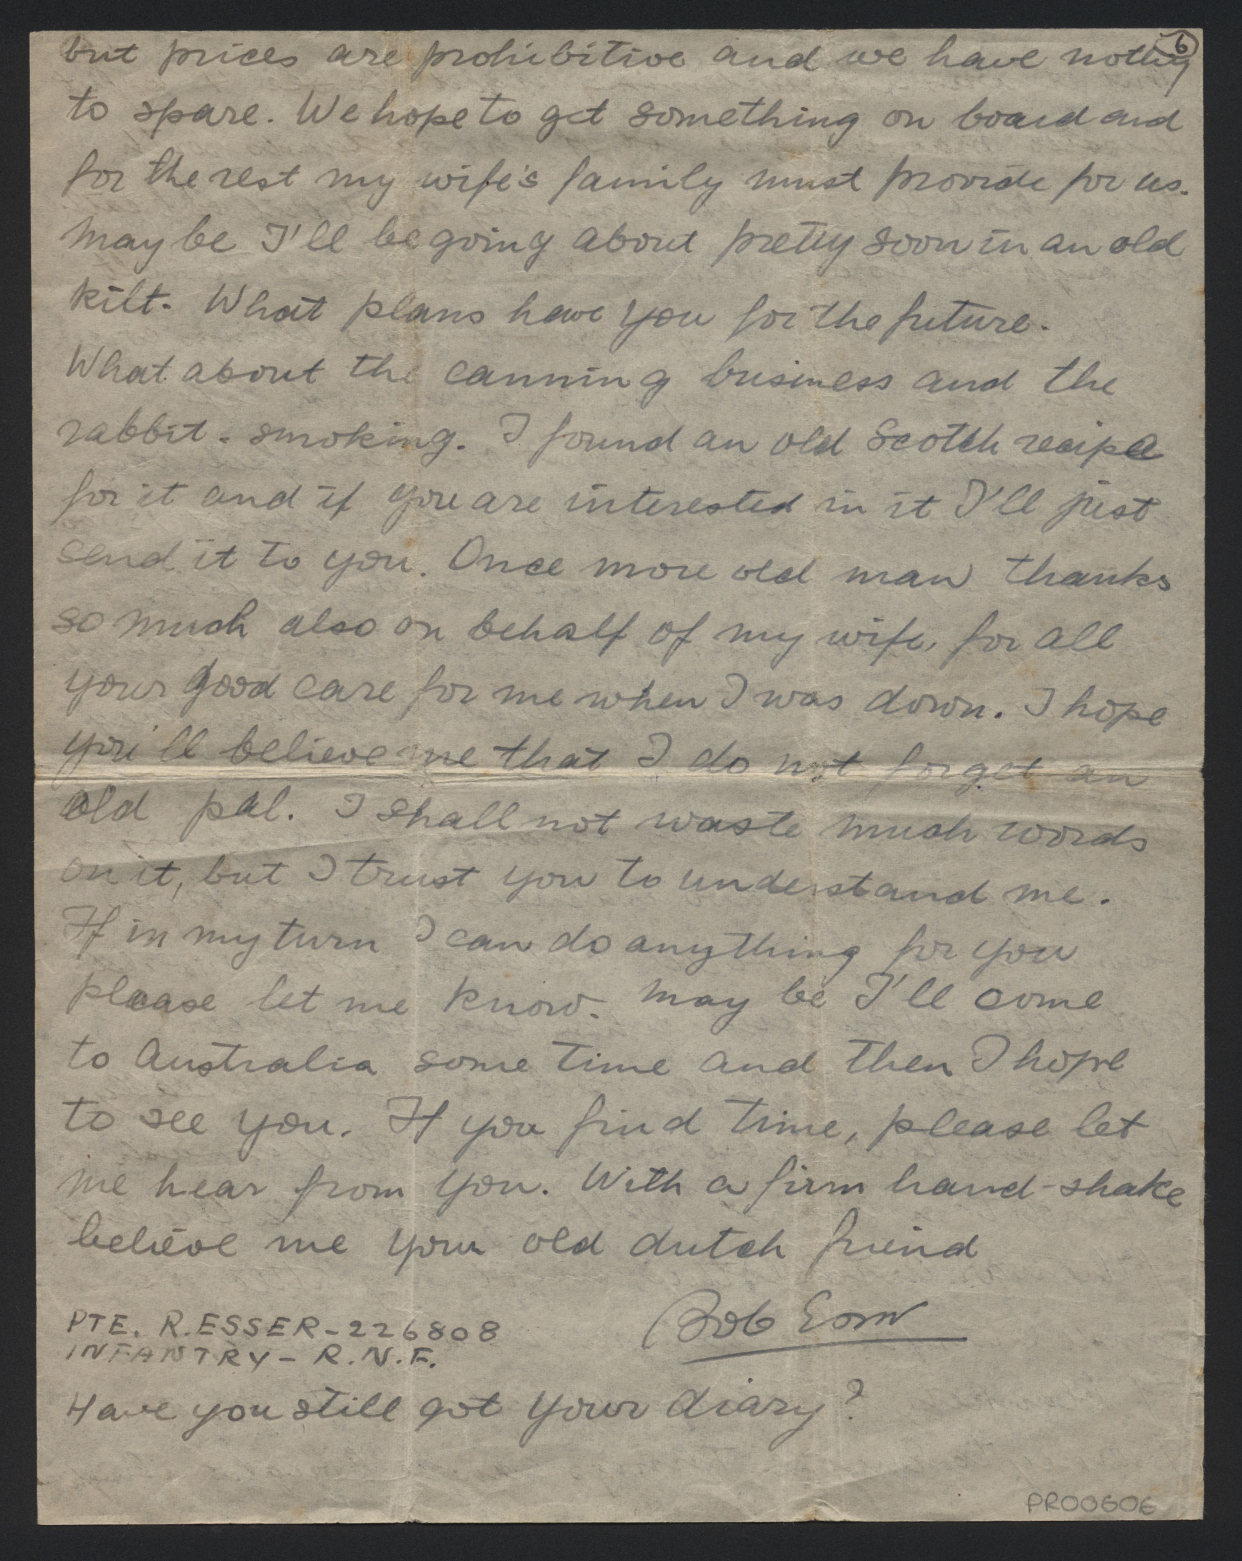 6
but prices are prohibitive and we have nothing
to spare. We hope to get something on board and
for the rest my wife's family must provide for us.
May be I'll be going about pretty soon in an old
kilt. What plans have you for the future.
What about the canning business and the
rabbit-smoking. I found an old Scotch recipe
for it and if you are interested in it I'll just
send it to you. Once more old man thanks
so much also on behalf of my wife, for all
your good care for me when I was down. I hope
you'll believe me that I do not forget an
old pal. I shall not waste much words
on it, but I trust you to understand me.
If in my turn I can do anything for you
please let me know. May be I'll come
to Australia some time and then I hope
to see you. If you find time, please let
me hear from you. With a firm hand-shake
believe me your old dutch friend
Bob Esser
PTE. R. ESSER-226808
INFANTRY - R.N.F.
Have you still got your diary?
PR00606